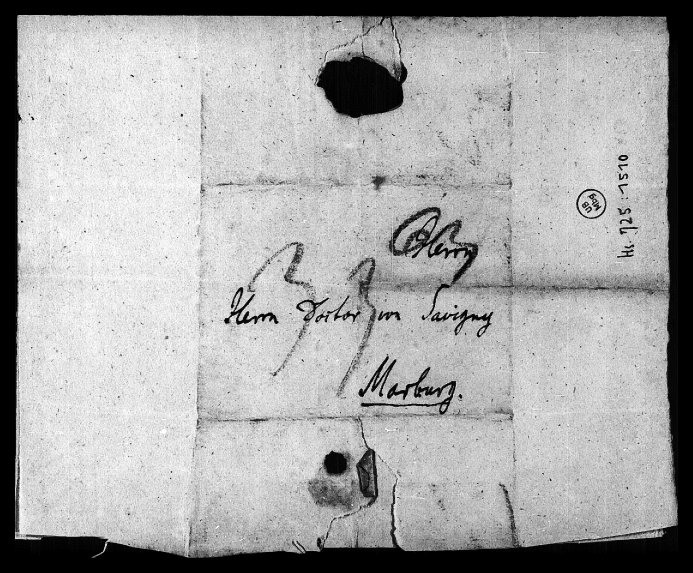 Herrn
Herrn Doctor von Savigny
Marburg.
Hs. 725:1510
UB
Mbg